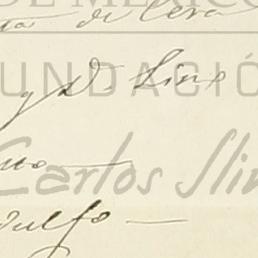 DE MÉXICO
de Cera
FUNDACIÓ
y D. Lino
Carlos Slim
dulfo —